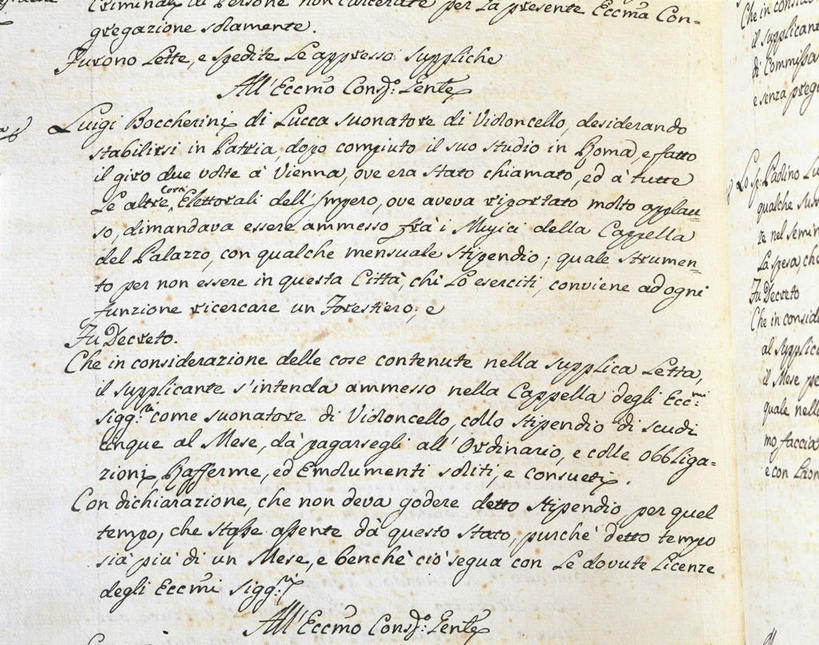 Criminali di Persone non carcerate per la presente Eccma Con-
gregazione solamente.
Furono Lette, e spedite Le appresso suppliche
All' Eccmo Cons.o: Lente
Luigi Boccherini di Lucca suonatore di Violoncello, desiderando
stabilirsi in Patria, dopo compiuto il suo studio in Roma, e fatto
il giro due volte à Vienna, ove era stato chiamato, ed à tutte
Le altre Corti Elettorali dell' Impero, ove aveva riportato molto applau-
so, dimandava essere ammesso frà i Musici della Cappella
del Palazzo, con qualche mensuale stipendio; quale strumen-
to per non essere in questa Città, chi Lo eserciti, conviene ad ogni
funzione ricercare un Forestiero; e
Fu Decreto.
Che in considerazione delle cose contenute nella supplica Letta,
il supplicante s'intenda ammesso nella Cappella degli Ecc:mi
sigg:ri come suonatore di Violoncello, collo stipendio di scudi
cinque al Mese, dà pagarsegli all' Ordinario, e colle obbliga-
zioni, Rafferme, ed Emolumenti soliti, e consueti.
Con dichiarazione, che non deva godere detto stipendio per quel
tempo, che stasse assente dà questo stato, purchè detto tempo
sià più di un Mese, e benchè ciò segua con Le dovute Licenze
degli Eccmi sigg:ri
All' Eccmo Cons.o: Lente
Che in
il supplicante
di Commissa
e senza
Lo sp: Paolino
qualche
re nel semin
La spesa, che
Fu Decreto
Che in consid
al supplic
il Mese pe
quale nell
mo, faccia
e con